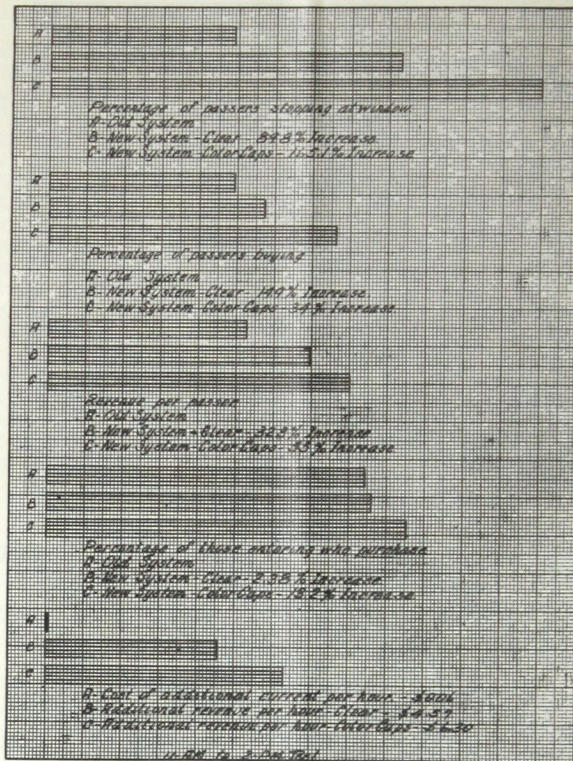 A
B
C
Percentage of passers stopping at window.
A-Old System
B-New System-Clear-89.8% Increase
C-New System-Color Caps- Increase
A
B
C
Percentage of passers buying
A-Old System
B-New System-Clear-14.9% Increase
C-New System-Color Caps-34% Increase
A
B
C
Revenue per passer
A-Old System
B-New System-Clear-32.3% Increase
C-New System-Color Caps- Increase
A
B
C
Percentage of those entering who purchase
A-Old System
B-New System-Clear-2.38% Increase
C-New System-Color Caps-13.2% Increase
A
B
C
A-Cost of additional current per hour -
B-Additional revenue per hour-Clear-$4.37
C-Additional revenue per hour-Color Caps-$6.30